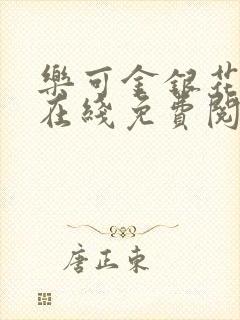 樂可金銀花
在綫免費閱
唐正東